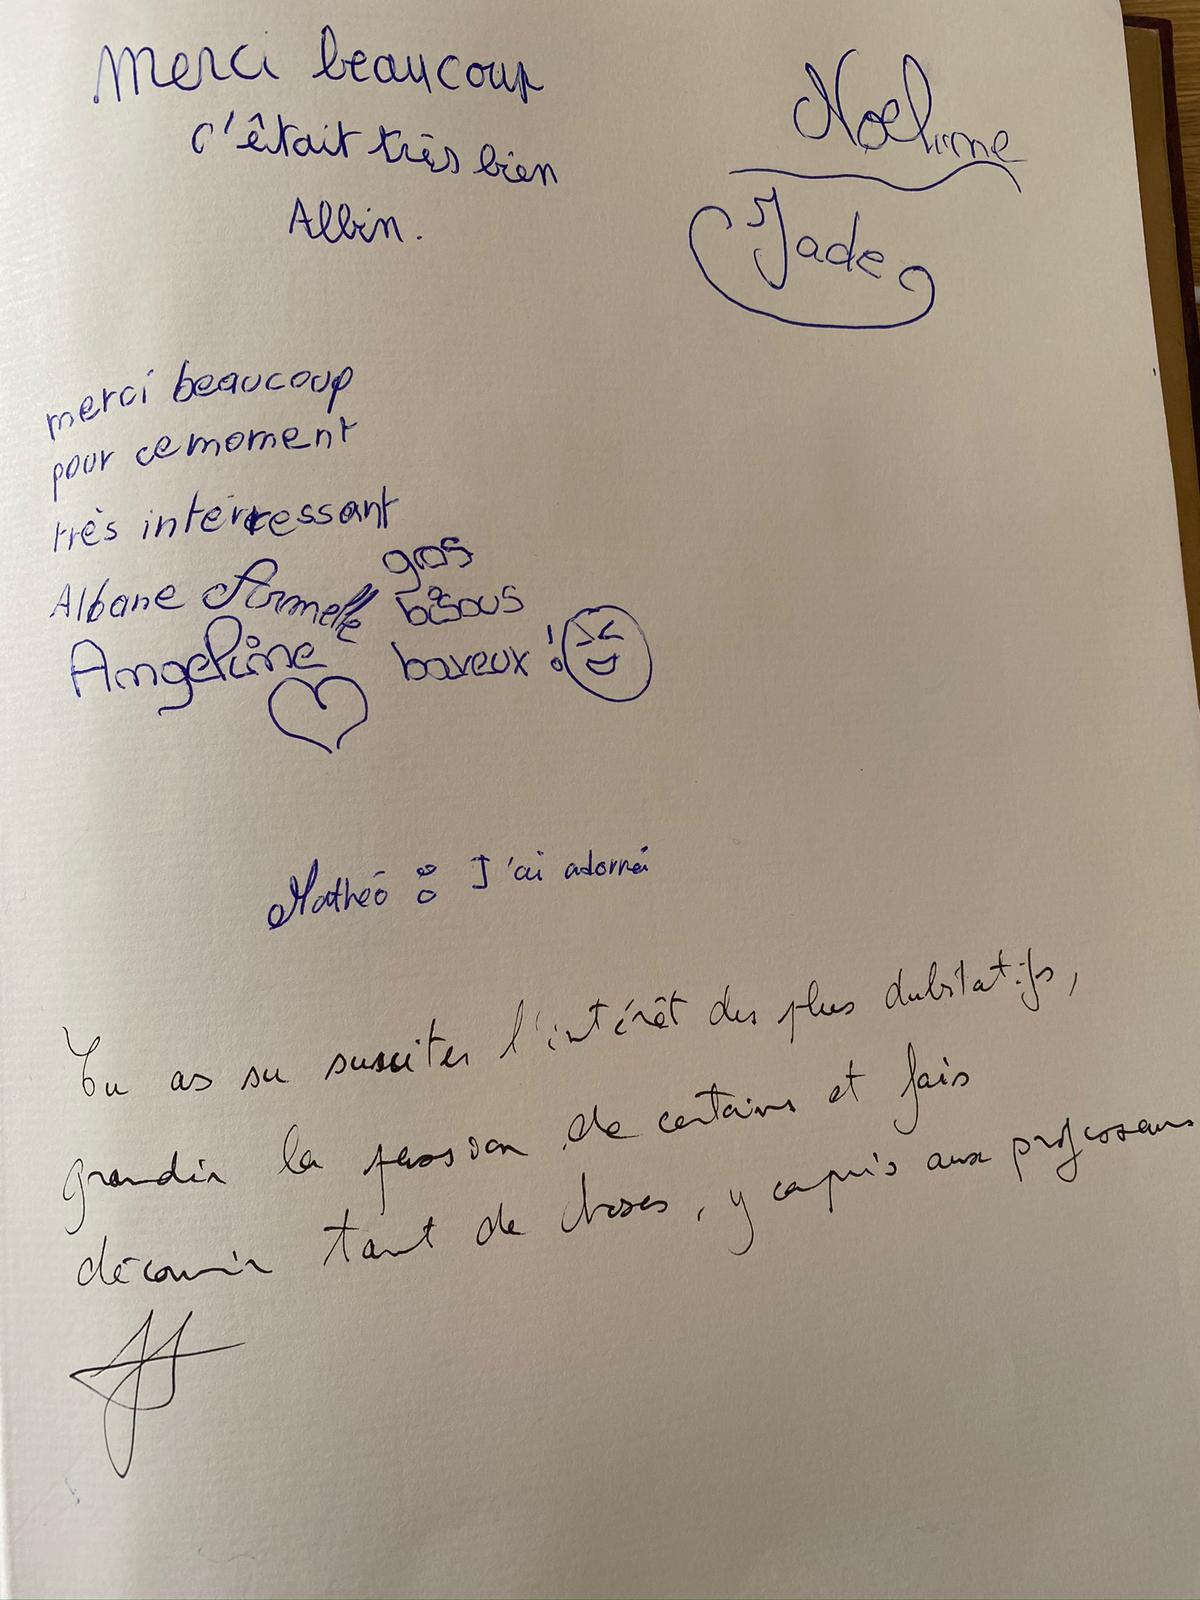 merci beaucoup
c'êtait très bien
Albin.
Noeline
Jade
merci beaucoup
pour ce moment
très interressant
Albane Armelle
Angeline
gros
bisous
baveux !
Mathéo : J'ai adorné
Tu as su susciter l'intérêt des plus dubitatifs,
grandir la passion de certains et fais
découvrir tant de choses, y compris aux professeurs